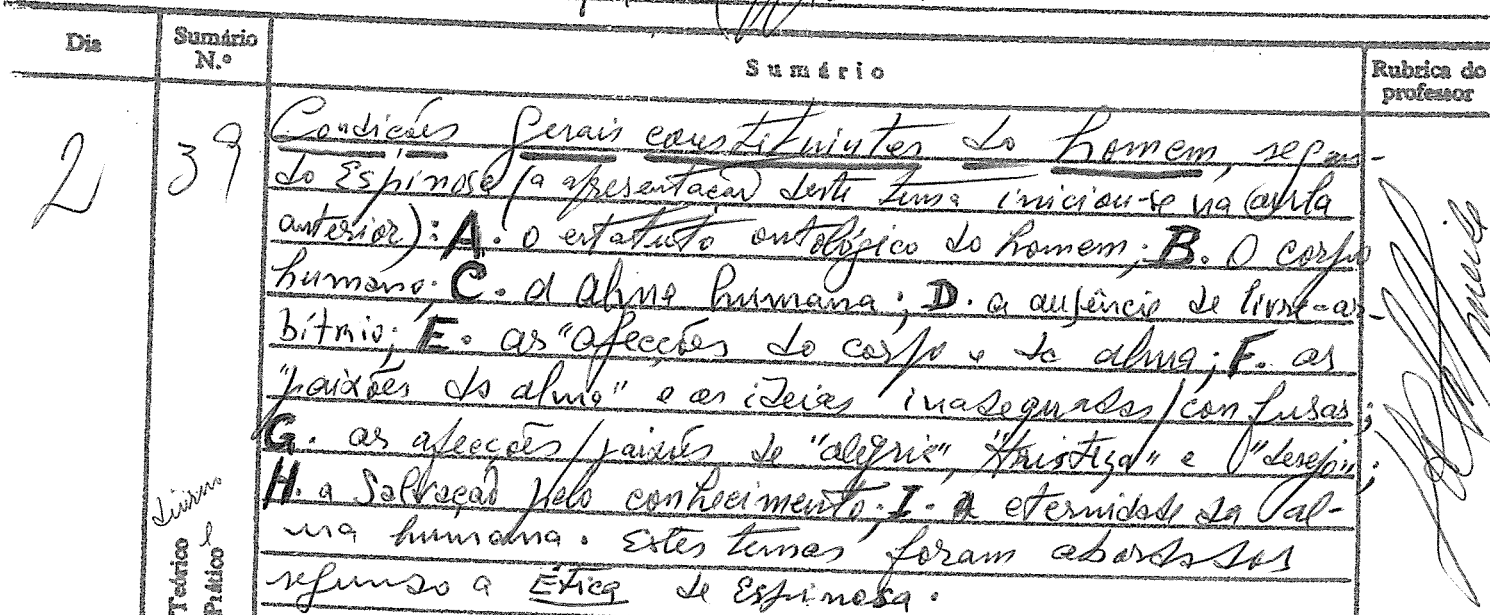 Dia
Sumário
N.º
Sumário
Rubrica do
professor
2
39
Condições gerais constituintes do homem, segun-
do Espinosa (a apresentação deste tema iniciou-se na aula
anterior): A. o estatuto ontológico do homem; B. O corpo
humano; C. a alma humana; D. a ausência de livre-ar-
bítrio; E. as "afecções do corpo e da alma; F. as
"paixões da alma" e as ideias inadequadas/confusas;
G. as afecções/paixões de "alegria", "tristeza" e "desejo";
H. a salvação pelo conhecimento; I. a eternidade da al-
ma humana. Estes temas foram abordados
segundo a Ética de Espinosa.
diurno
Teórico e
Prático